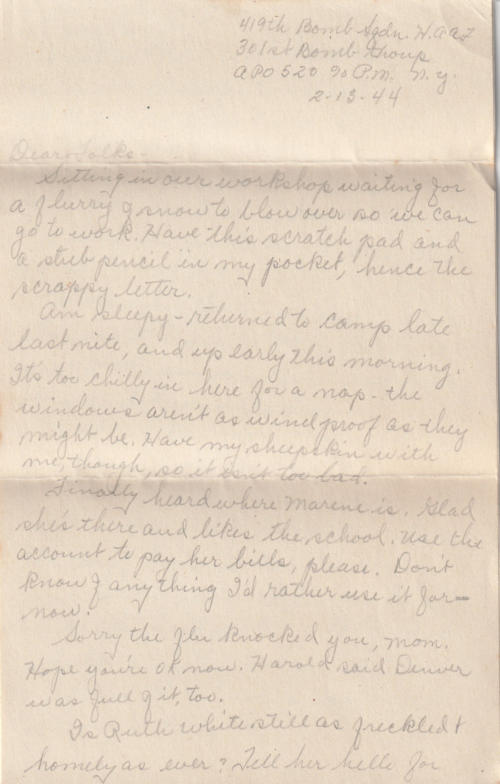 419th Bomb Sqdn. H.A.A.F.
301st Bomb Group
APO 520 % P.M. N.Y.
2-13-44
Dear Folks-
Sitting in our workshop waiting for
a flurry of snow to blow over so we can
go to work. Have this scratch pad and
a stub pencil in my pocket, hence the
scrappy letter.
Am sleepy - returned to camp late
last nite, and up early this morning.
It's too chilly in here for a nap - the
windows aren't as wind proof as they
might be. Have my sheepskin with
me, though, so it isn't too bad.
Finally heard where Marene is. Glad
she's there and likes the school. Use the
account to pay her bills, please. Don't
know of anything I'd rather use it for -
now.
Sorry the flu knocked you, mom.
Hope you're ok now. Harold said Denver
was full of it, too.
Is Ruth White still as freckled &
homely as ever? Tell her hello for